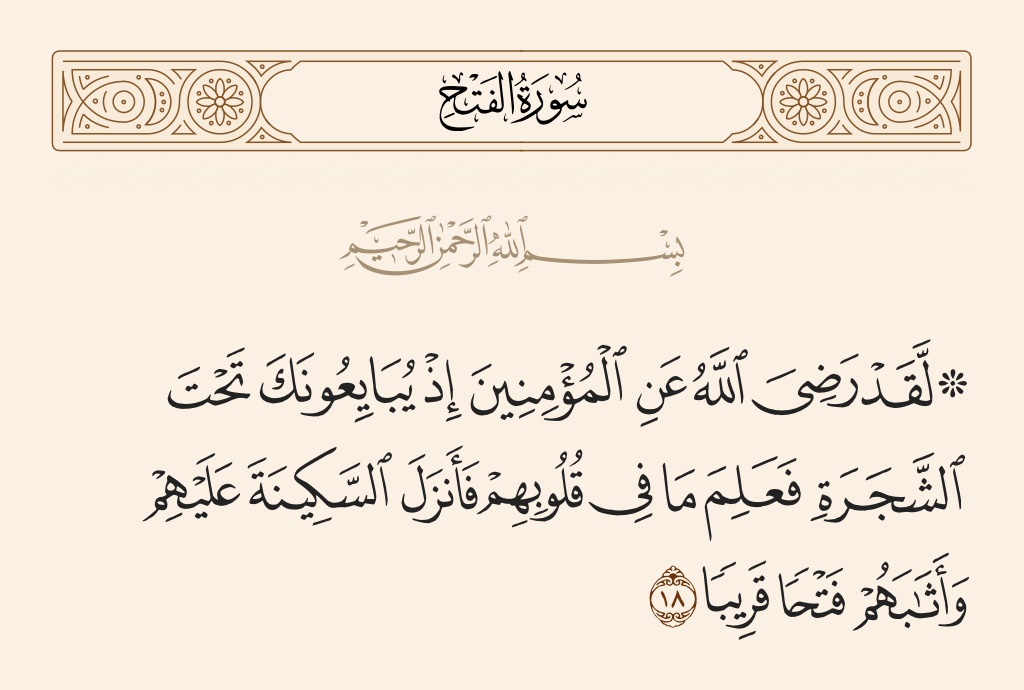 سُورَةُ الفَتْحِ
بِسْمِ ٱللَّهِ ٱلرَّحْمَٰنِ ٱلرَّحِيمِ
۞ لَّقَدْ رَضِىَ ٱللَّهُ عَنِ ٱلْمُؤْمِنِينَ إِذْ يُبَايِعُونَكَ تَحْتَ
ٱلشَّجَرَةِ فَعَلِمَ مَا فِى قُلُوبِهِمْ فَأَنزَلَ ٱلسَّكِينَةَ عَلَيْهِمْ
وَأَثَٰبَهُمْ فَتْحًا قَرِيبًا ١٨